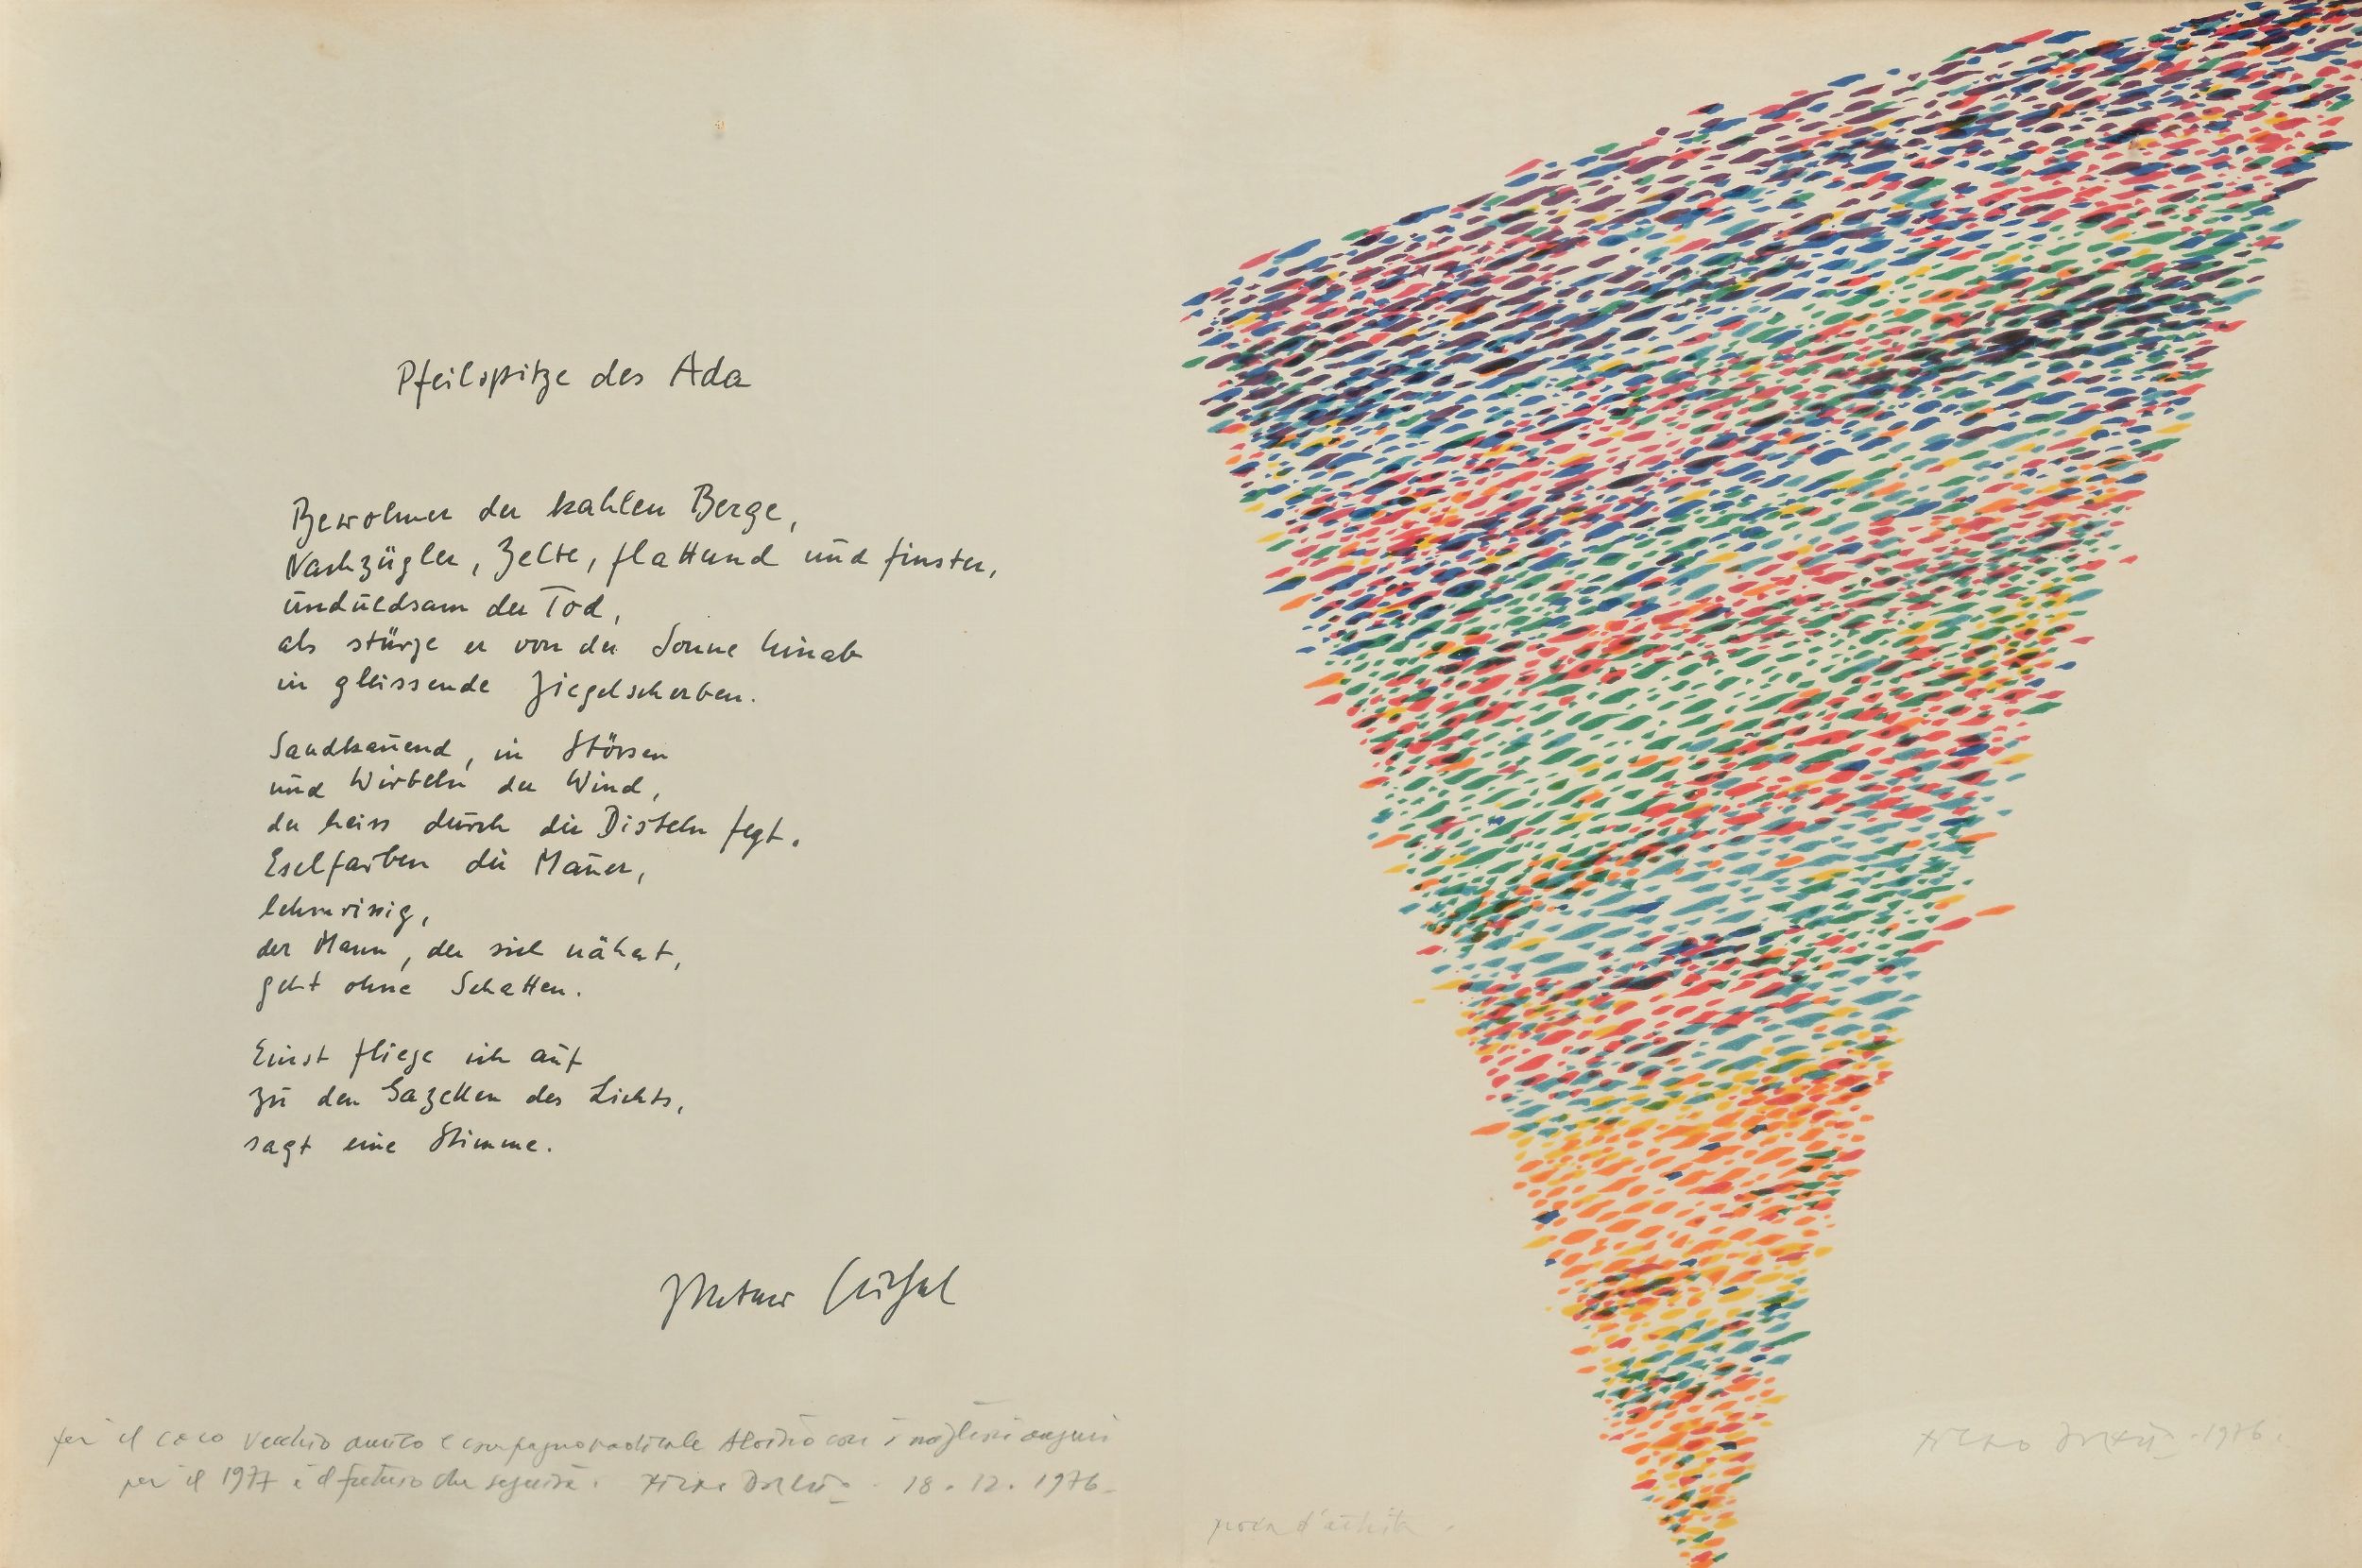 Pfeilspitze des Ada
Bewohner der kahlen Berge,
Nachzügler, Zelte, flatternd und finster,
unduldsam der Tod,
als stürze er von der Sonne hinab
in gleissende Ziegelscherben.
Sandkauend, in Stössen
und Wirbeln der Wind,
der heiss durch die Disteln fegt.
Eselfarben die Mauer,
lehmrissig,
der Mann, der sich nähert,
geht ohne Schatten.
Einst fliege ich auf
zu den Gazellen des Lichts,
sagt eine Stimme.
per il caro vecchio amico e compagno radicale Aloisio con i migliori auguri
per il 1977 e il futuro che seguirà. Piero Dorazio 18.12.1976
prova d'artista.
Piero Dorazio 1976.